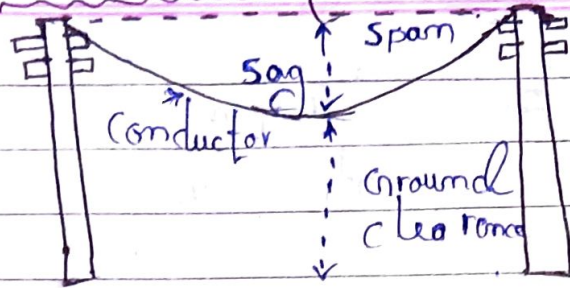 Span
Sag
Conductor
Ground
Clearance